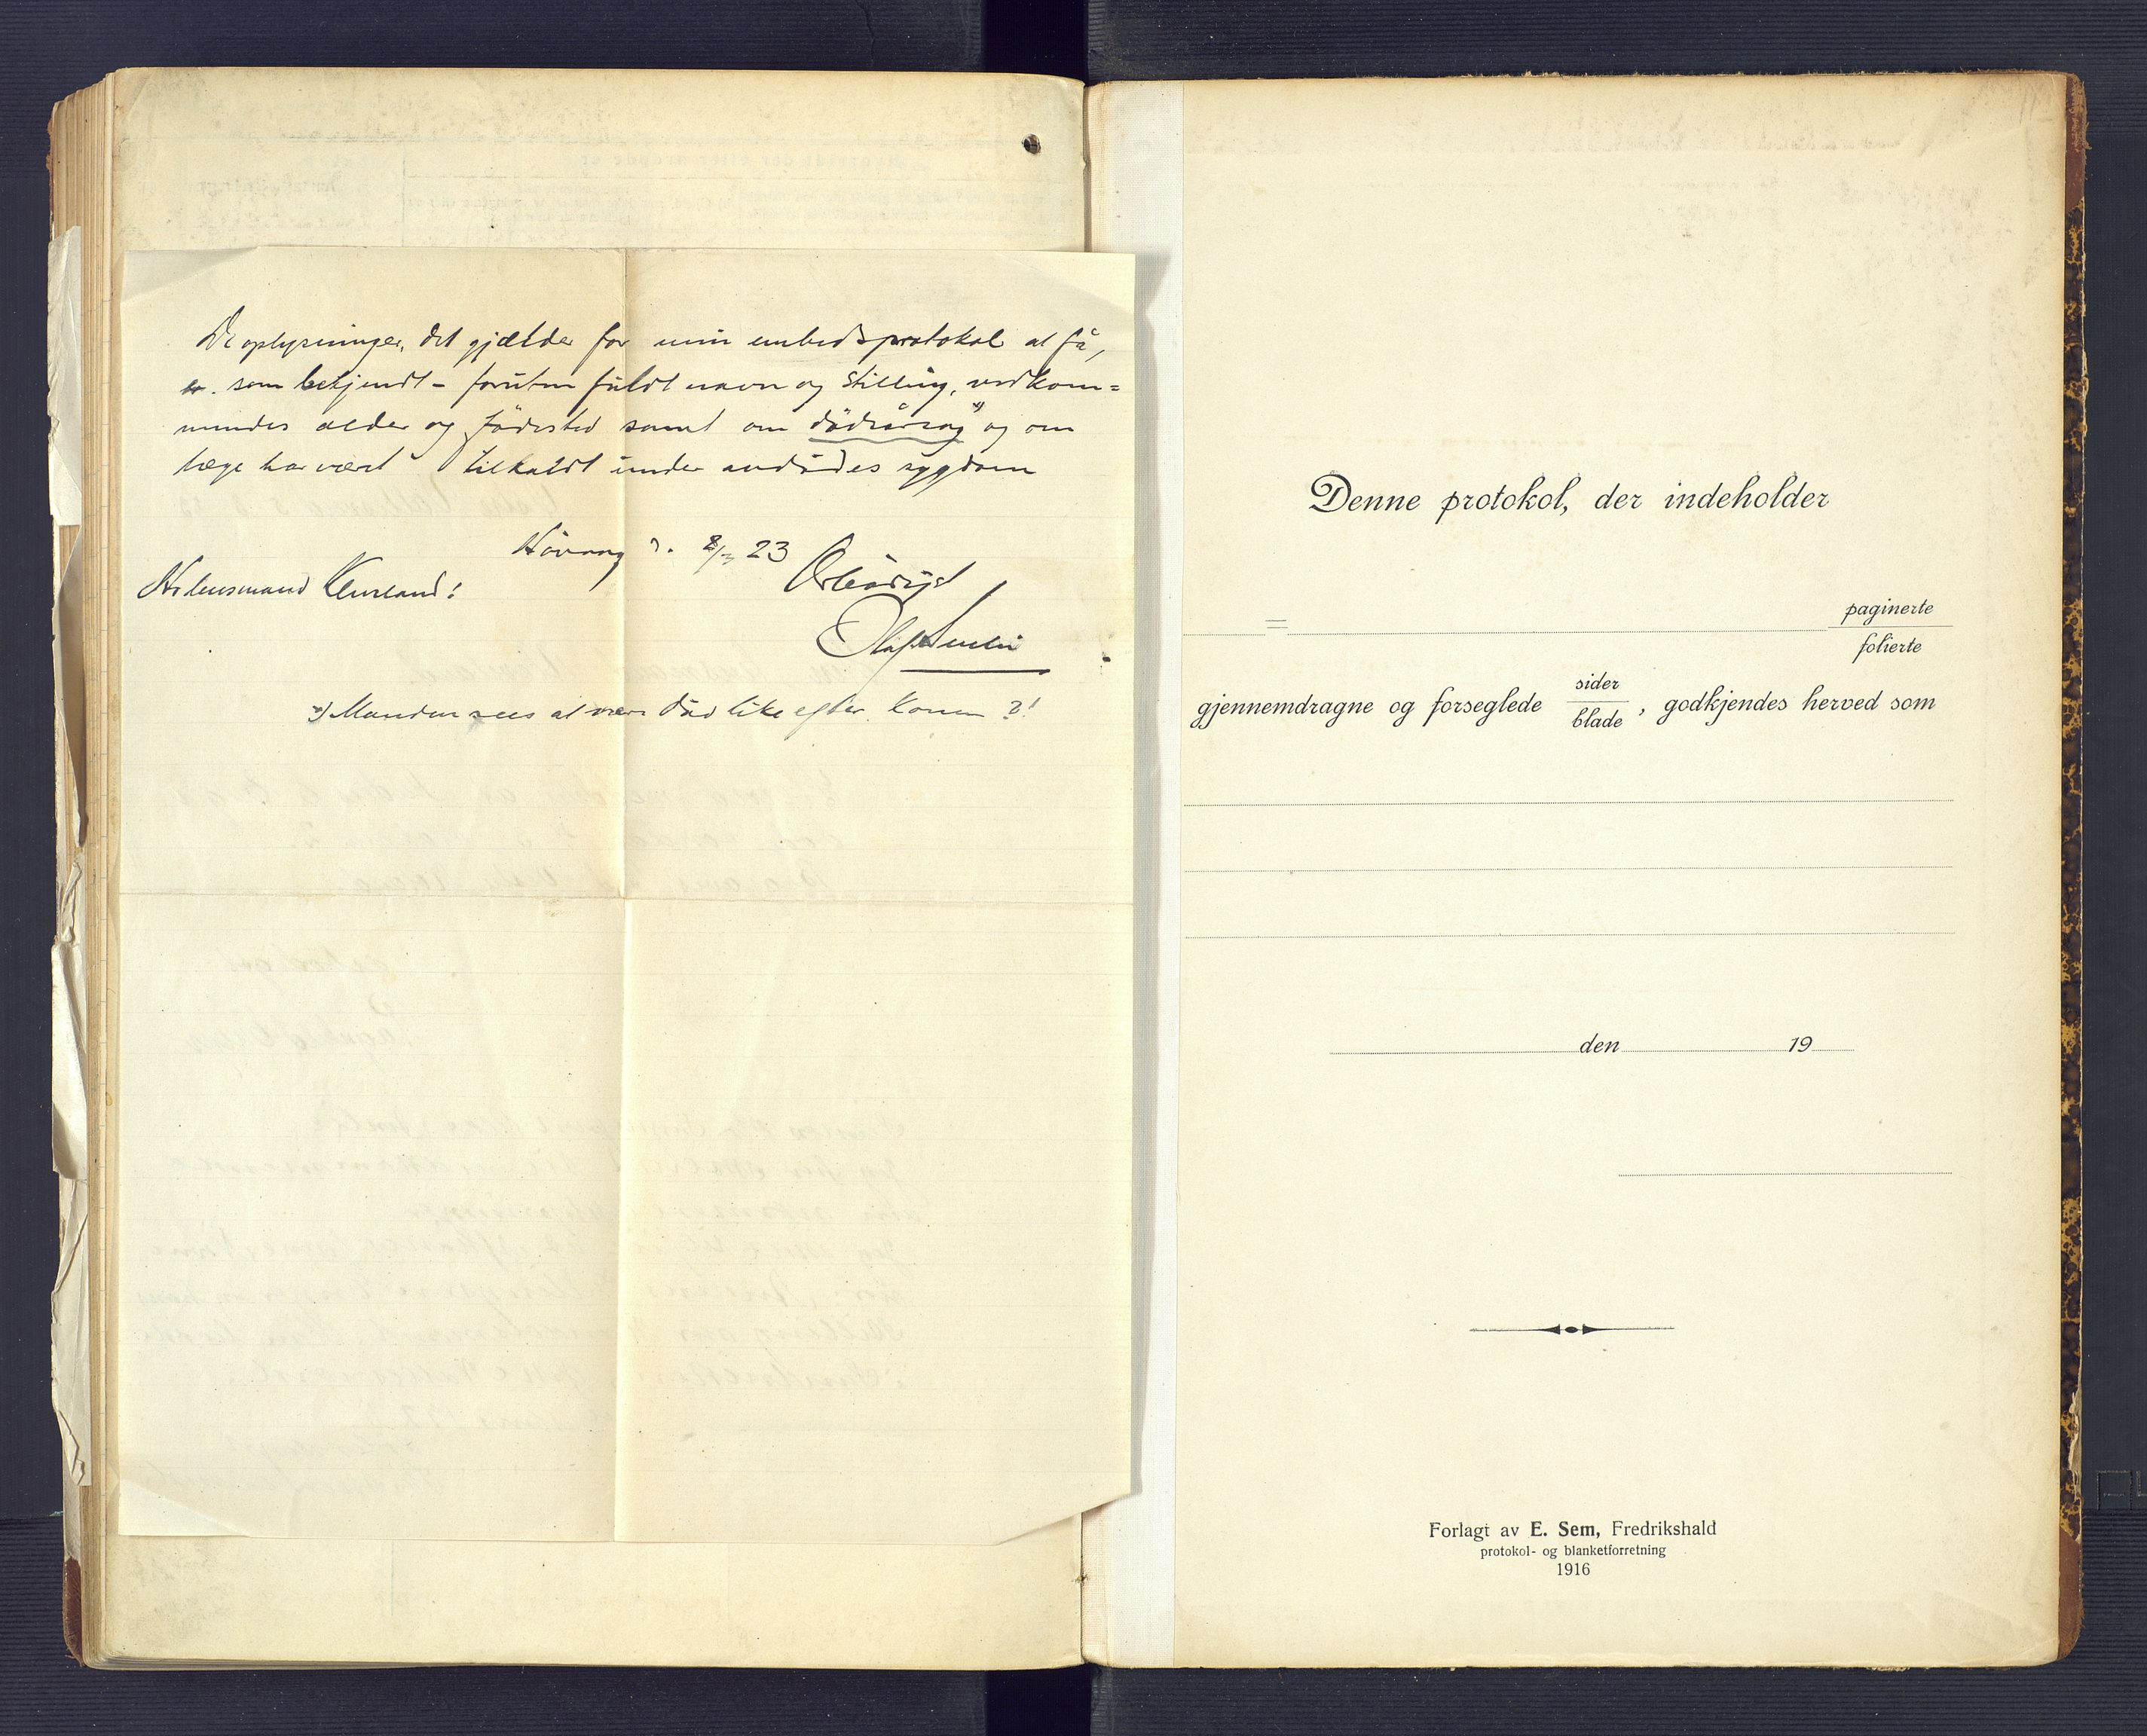 De oplysninger, det gjælder for min embedsprotokol at få,
er. som bekjendt - foruten fuldt navn og stilling, vedkom=
mendes alder og fødested samt om dødsårsag x) og om
læge har vært tilkaldt under avdødes sygdom
Høvaag d. 8/3 23
Ærbødigst
Hr lensmand
Olaf
x) Manden sees at være død like efter konen ?!
Denne protokol, der indeholder
= paginerte
folierte
gjennemdragne og forseglede sider
blade , godkjendes herved som
den 19
Forlagt av E. Sem, Fredrikshald
protokol- og blanketforretning
1916